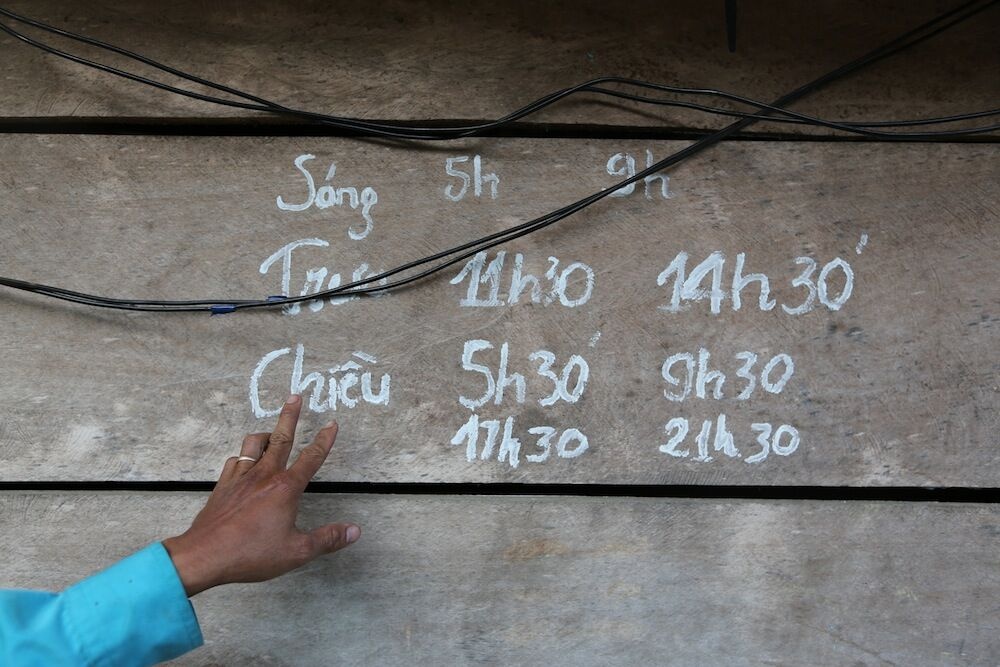 Sáng 5h 9h
Trưa 11h30 14h30'
Chiều 5h30' 9h30
17h30 21h30